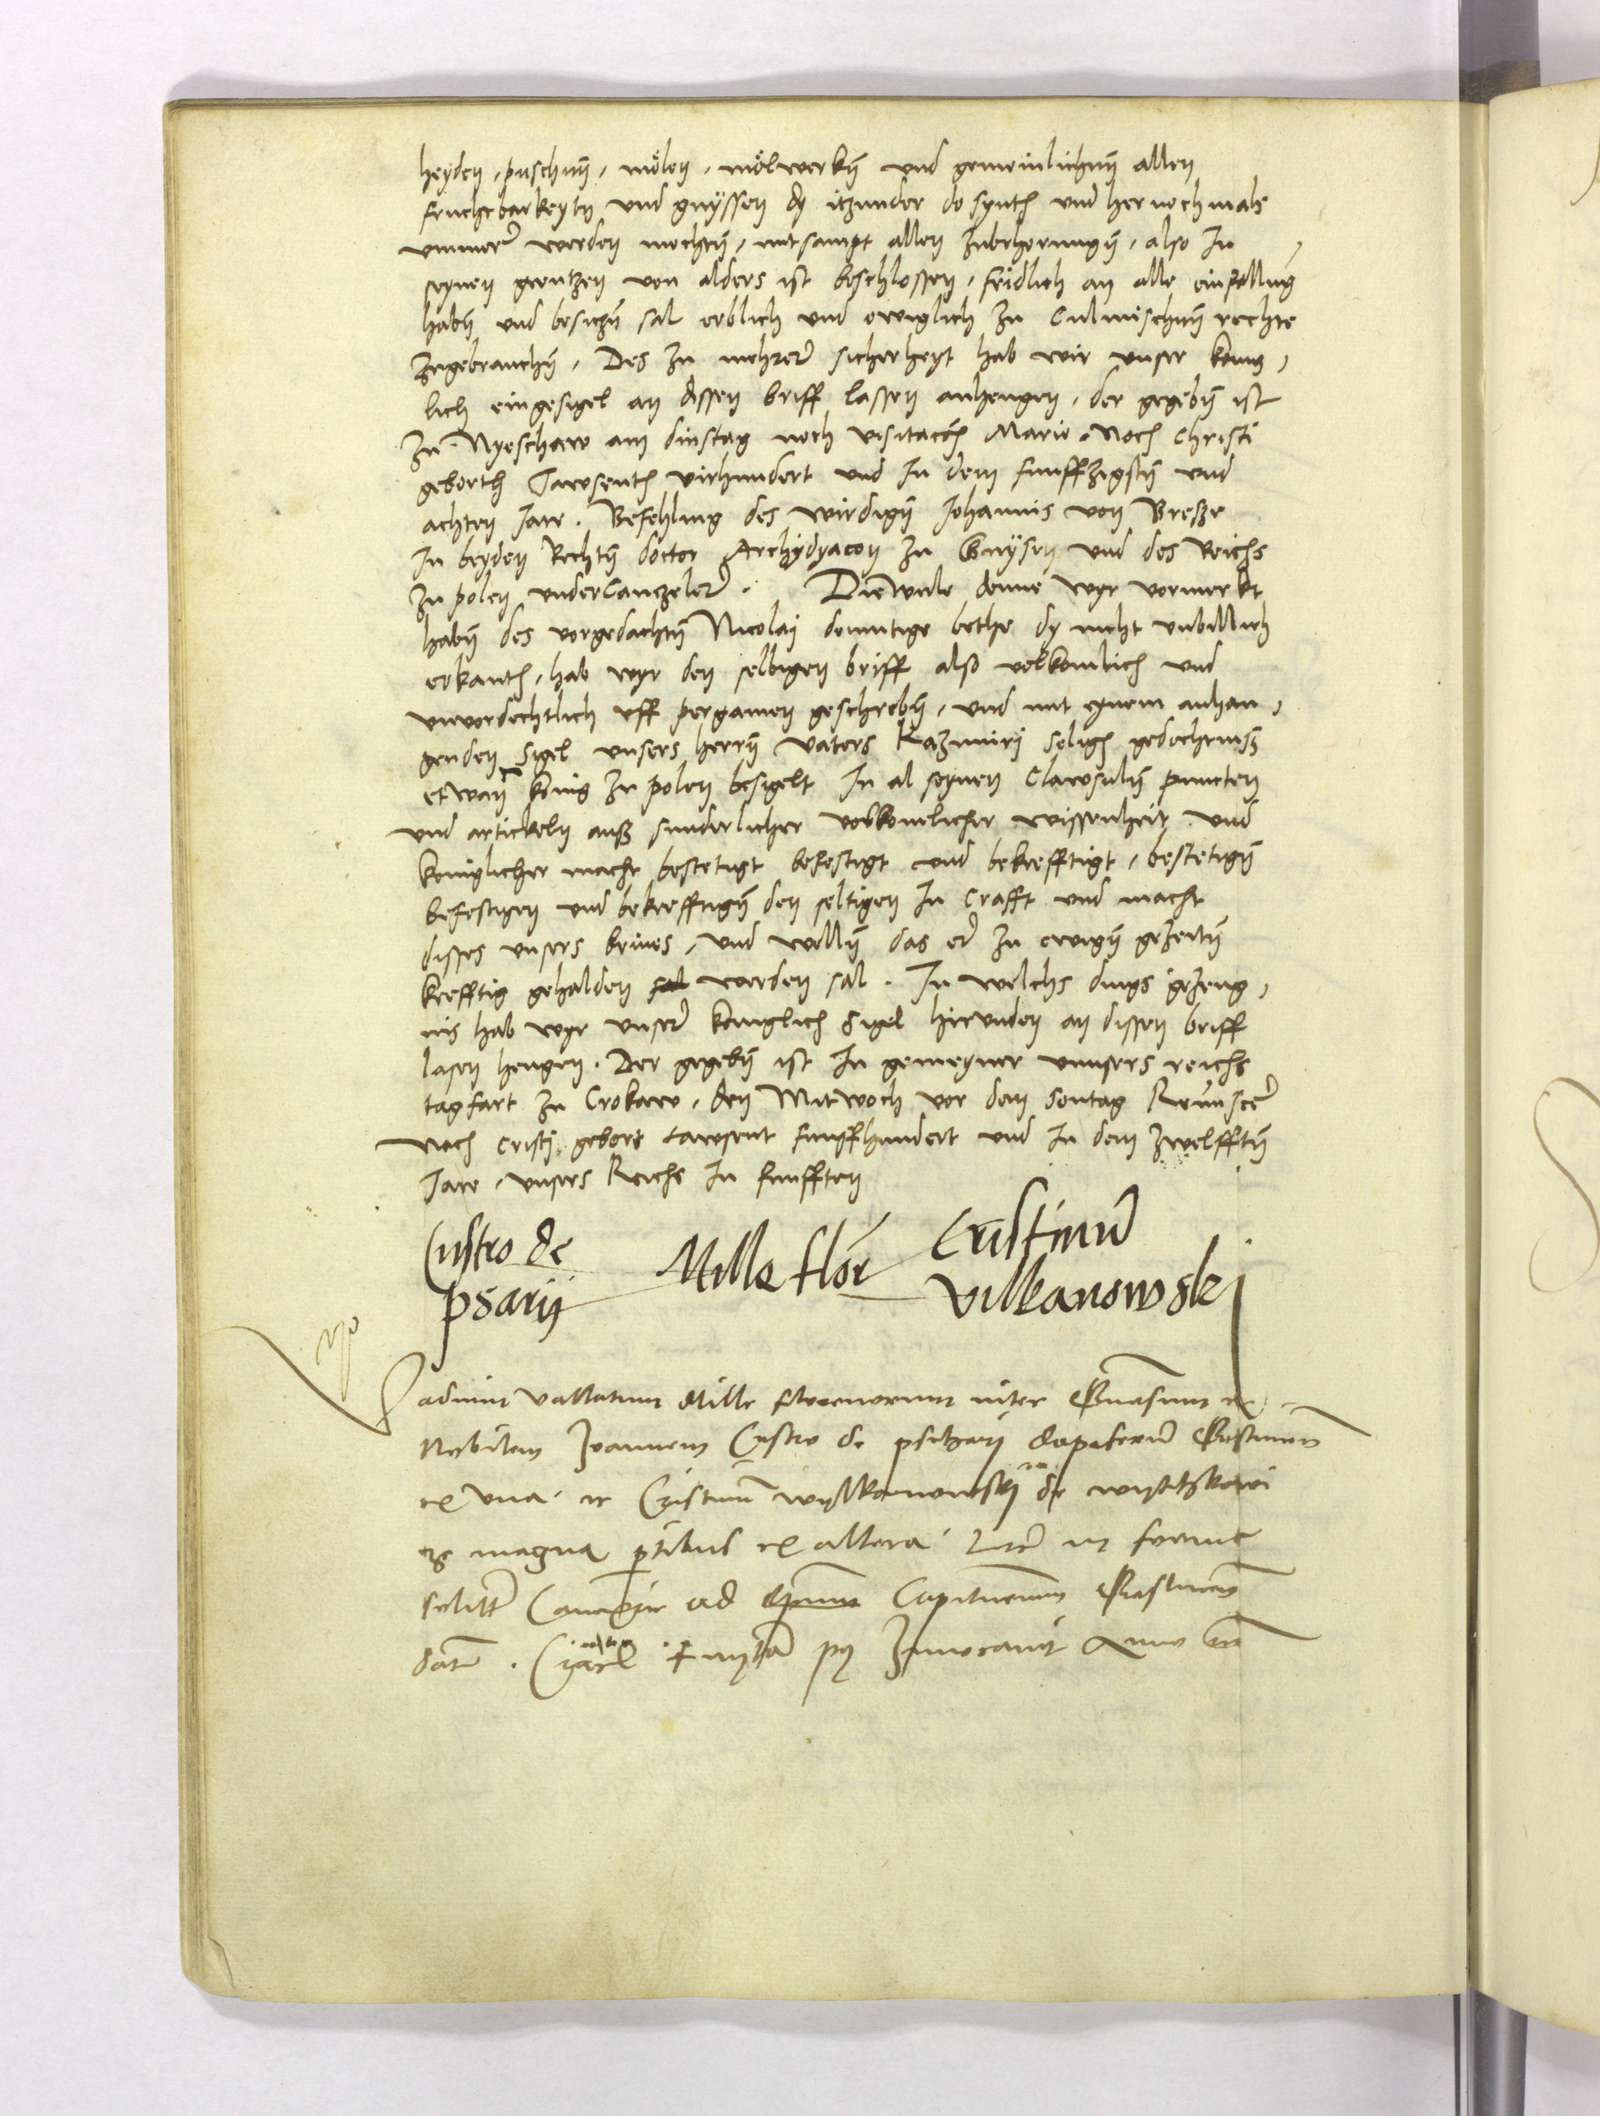 heyden, puschnn, mölen, mölwerkn und gemeinlichnn allen
fruchtbarkeytn und gnyssen dy itzunder do synth und hernochmals
ummer werden mochtn, mitsampt allen zubehorungn, also In
seynen grentzen von alders ist beschlossen, fridlich an alle einfellung
habn und besiczn sal erblich und ewiglich zu Culmischnn rechte
zugebrauchn, Des zu mehrer sicherheyt hab wir unser konig,
lich eingesigel an dissen briff lassen anhengen, der gegebn ist
zu Nyeschaw am dinstag noch visitacon Marie, Noch Christi
geborth Tawsenth virhundert und In dem funffzigstn und
achten Jare. Befehlung des wirdign Johannis von Bresze
In beyden Rechtn doctor Archydyacon zu Gnysen und des Reichs
zu polen underCanczeler. Diewile denne wyr vormerkt
habn des vorgedachtn Nicolaj demutige bethe dy nicht unbillich
erkanth, hab wyr den selbigen briff also volkomlich und
unvordechtlich uff pergamen geschrebn, und mit eynem anhan,
genden Sigel unsers herrn vaters Kazimirj seligh gedechtnisz
etwan konig zu polen besigelt In al seynen Clawsuln puncten
und artickeln ausz sunderlicher volkomlicher wissenheit und
koniglicher macht bestetigt befestigt und bekrefftigt, bestetign
befestigen und bekrefftign den selbigen In Crafft und macht
disses unsers brives, und welln das er zu ewign gezeitn
krefftig gehalden sal werden sal. In welchs dings gezeug,
nis hab wyr unser koniglich Sigel hirunden an dissen briff
lasen hengen. Der gegebn ist In gemeyner unnsers reichs
tagfart zu Crokaw, den Mitwoch vor dem Sontag Reminscer
noch Cristj gebort tawsent funffhundert und In dem zwelfftn
Jare, unsers Reichs In funfften
Custro de Mille flor Cristinu
psarij Vilkanowskj
vadium vallatum Mille florenorum inter
Nobilem Joannem Custro de dapiferum
ex una et Cristinu wylkanowskj de
magna ptibus ex altera In forma
ad Capitneum
dat. Anno